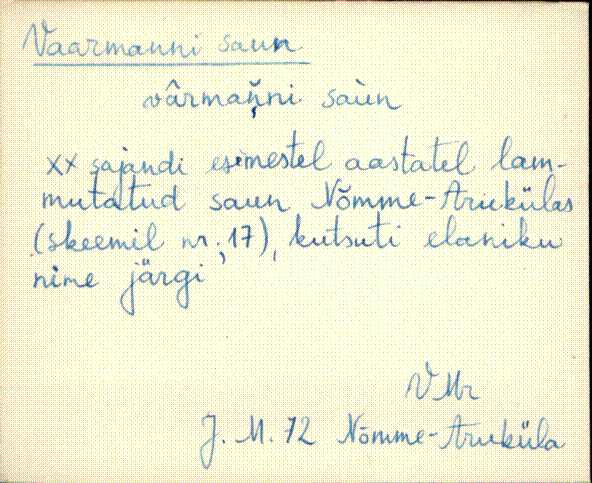 Vaarmanni saun
vârmaňni saùn
XX sajandi esimestel aastatel lam-
mutatud saun Nõmme-Arukülas
(skeemil nr. 17), kutsuti elaniku
nime järgi
VMr
J. M. 72 Nõmme-Aruküla